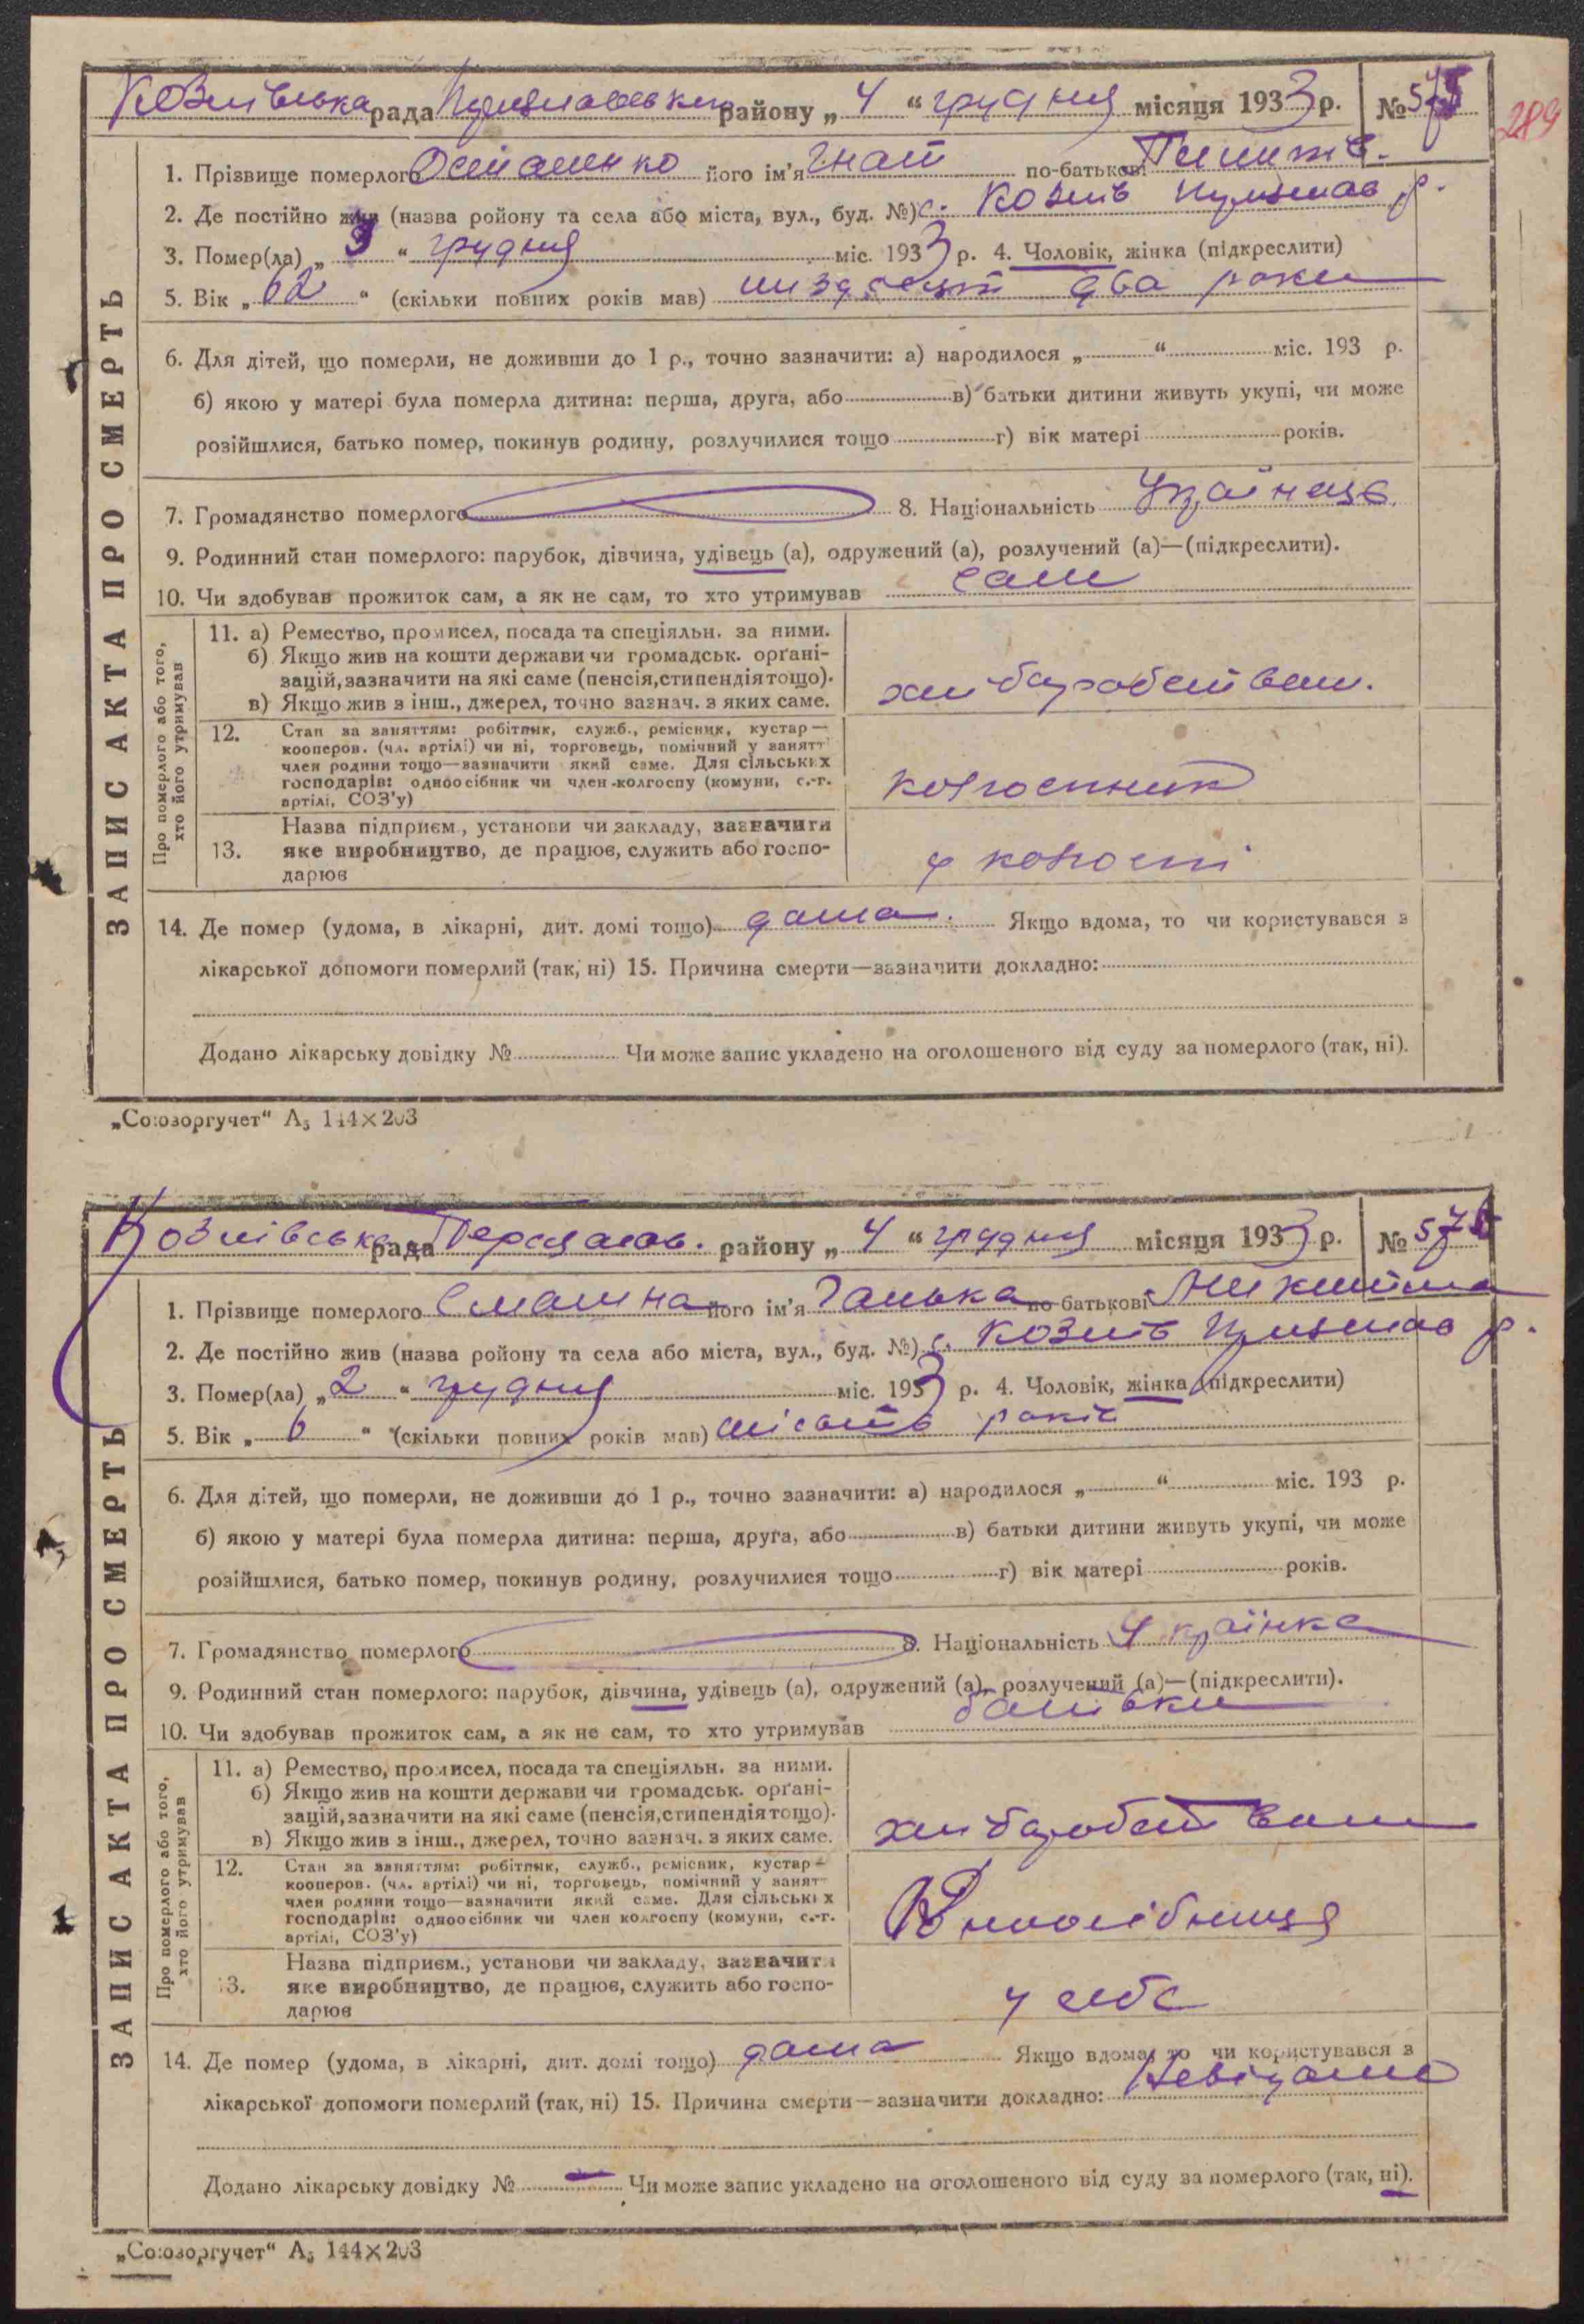 Козлівська рада Переяславського району „ 4 “ грудня місяця 1933 р. № 575
289
1. Прізвище померлого Остапенко його ім'я Гнат по-батькові
2. Де постійно жив (назва ройону та села або міста, вул., буд. №) с. Козлів Переяслав р.
3. Помер(ла) „ 3 “ грудня міс. 1933 р. 4. Чоловік, жінка (підкреслити)
5. Вік „ 62 “ (скільки повних років мав) шіздесят два роки
6. Для дітей, що померли, не доживши до 1 р., точно зазначити: а) народилося „ “ міс. 193 р.
б) якою у матері була померла дитина: перша, друга, або в) батьки дитини живуть укупі, чи може
розійшлися, батько помер, покинув родину, розлучилися тощо г) вік матері років.
7. Громадянство померлого 8. Національність Українець
9. Родинний стан померлого: парубок, дівчина, удівець (а), одружений (а), розлучений (а)—(підкреслити).
10. Чи здобував прожиток сам, а як не сам, то хто утримував сам
ЗАПИС АКТА ПРО СМЕРТЬ
Про померлого або того, хто його утримував
11. а) Ремество, промисел, посада та спеціяльн. за ними.
б) Якщо жив на кошти держави чи громадськ. орґані-
зацій, зазначити на які саме (пенсія, стипендія тощо).
в) Якщо жив з інш., джерел, точно зазнач. з яких саме.
хліборобством.
12. Стан за заняттям: робітник, служб., ремісник, кустар—
кооперов. (чл. артілі) чи ні, торговець, помічний у занятт
член родини тощо—зазначити який саме. Для сільських
господарів: одноосібник чи член колгоспу (комуни, с.-г.
артілі, СОЗ'у)
колгоспник
13. Назва підприєм., установи чи закладу, зазначити
яке виробництво, де працює, служить або госпо-
дарює
у колгоспі
14. Де помер (удома, в лікарні, дит. домі тощо) дома. Якщо вдома, то чи користувався з
лікарської допомоги померлий (так, ні) 15. Причина смерти—зазначити докладно:
Додано лікарську довідку № Чи може запис укладено на оголошеного від суду за померлого (так, ні).
„Союзоргучет“ А₅ 144×203
Козлівська рада Переяслав. району „ 4 “ грудня місяця 1933 р. № 576
1. Прізвище померлого його ім'я Ганька по батькові Микитина
2. Де постійно жив (назва ройону та села або міста, вул., буд. №) с. Козлів Переяслав р.
3. Помер(ла) „ 2 “ грудня міс. 1933 р. 4. Чоловік, жінка (підкреслити)
5. Вік „ 6 “ (скільки повних років мав) шість років
6. Для дітей, що померли, не доживши до 1 р., точно зазначити: а) народилося „ “ міс. 193 р.
б) якою у матері була померла дитина: перша, друга, або в) батьки дитини живуть укупі, чи може
розійшлися, батько помер, покинув родину, розлучилися тощо г) вік матері років.
7. Громадянство померлого 8. Національність Українка
9. Родинний стан померлого: парубок, дівчина, удівець (а), одружений (а), розлучений (а)—(підкреслити).
10. Чи здобував прожиток сам, а як не сам, то хто утримував батьки
ЗАПИС АКТА ПРО СМЕРТЬ
Про померлого або того, хто його утримував
11. а) Ремество, промисел, посада та спеціяльн. за ними.
б) Якщо жив на кошти держави чи громадськ. орґані-
зацій, зазначити на які саме (пенсія, стипендія тощо).
в) Якщо жив з інш., джерел, точно зазнач. з яких саме.
хліборобством
12. Стан за заняттям: робітник, служб., ремісник, кустар—
кооперов. (чл. артілі) чи ні, торговець, помічний у занят
член родини тощо—зазначити який саме. Для сільських
господарів: одноосібник чи член колгоспу (комуни, с.-г.
артілі, СОЗ'у)
13. Назва підприєм., установи чи закладу, зазначити
яке виробництво, де працює, служить або госпо-
дарює
у себе
14. Де помер (удома, в лікарні, дит. домі тощо) дома Якщо вдома, то чи користувався з
лікарської допомоги померлий (так, ні) 15. Причина смерти—зазначити докладно: Невідомо
Додано лікарську довідку № — Чи може запис укладено на оголошеного від суду за померлого (так, ні).
„Союзоргучет“ А₅ 144×203